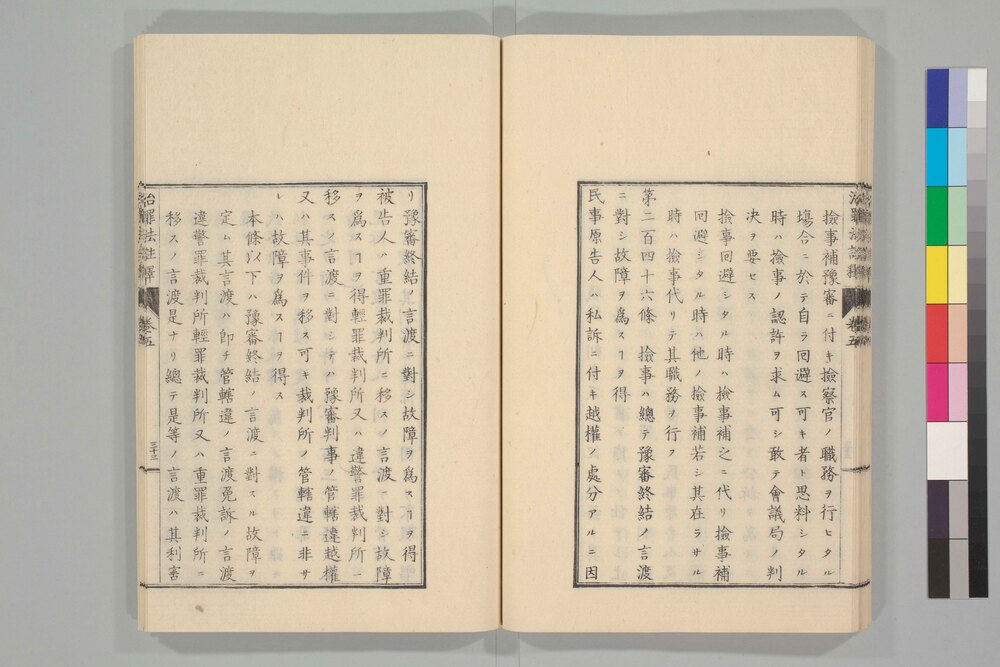 撿事補豫審ニ付キ撿察官ノ職務ヲ行ヒタル
塲合ニ於テ自ラ回避ス可キ者ト思料シタル
時ハ撿事ノ認許ヲ求ム可シ敢テ會議局ノ判
決ヲ要セス
撿事回避シタル時ハ撿事補之ニ代リ撿事補
回避シタル時ハ他ノ撿事補若シ其在ラサル
時ハ撿事代リテ其職務ヲ行フ
第二百四十六條 撿事ハ總テ豫審終結ノ言渡
ニ對シ故障ヲ爲スヿヲ得
民事原告人ハ私訴ニ付キ越權ノ處分アルニ因
リ豫審終結ノ言渡ニ對シ故障ヲ爲スヿヲ得
被告人ハ重罪裁判所ニ移スノ言渡ニ對シ故障
ヲ爲スヿヲ得輕罪裁判所又ハ違警罪裁判所ニ
移スノ言渡ニ對シテハ豫審判事ノ管轄違越權
又ハ其事件ヲ移ス可キ裁判所ノ管轄違ニ非サ
レハ故障ヲ爲スヿヲ得ス
本條以下ハ豫審終結ノ言渡ニ對スル故障ヲ
定ム其言渡ハ卽チ管轄違ノ言渡免訴ノ言渡
違警罪裁判所輕罪裁判所又ハ重罪裁判所ニ
移スノ言渡是ナリ總テ是等ノ言渡ハ其利害
治罪法註釋 卷五 三十三